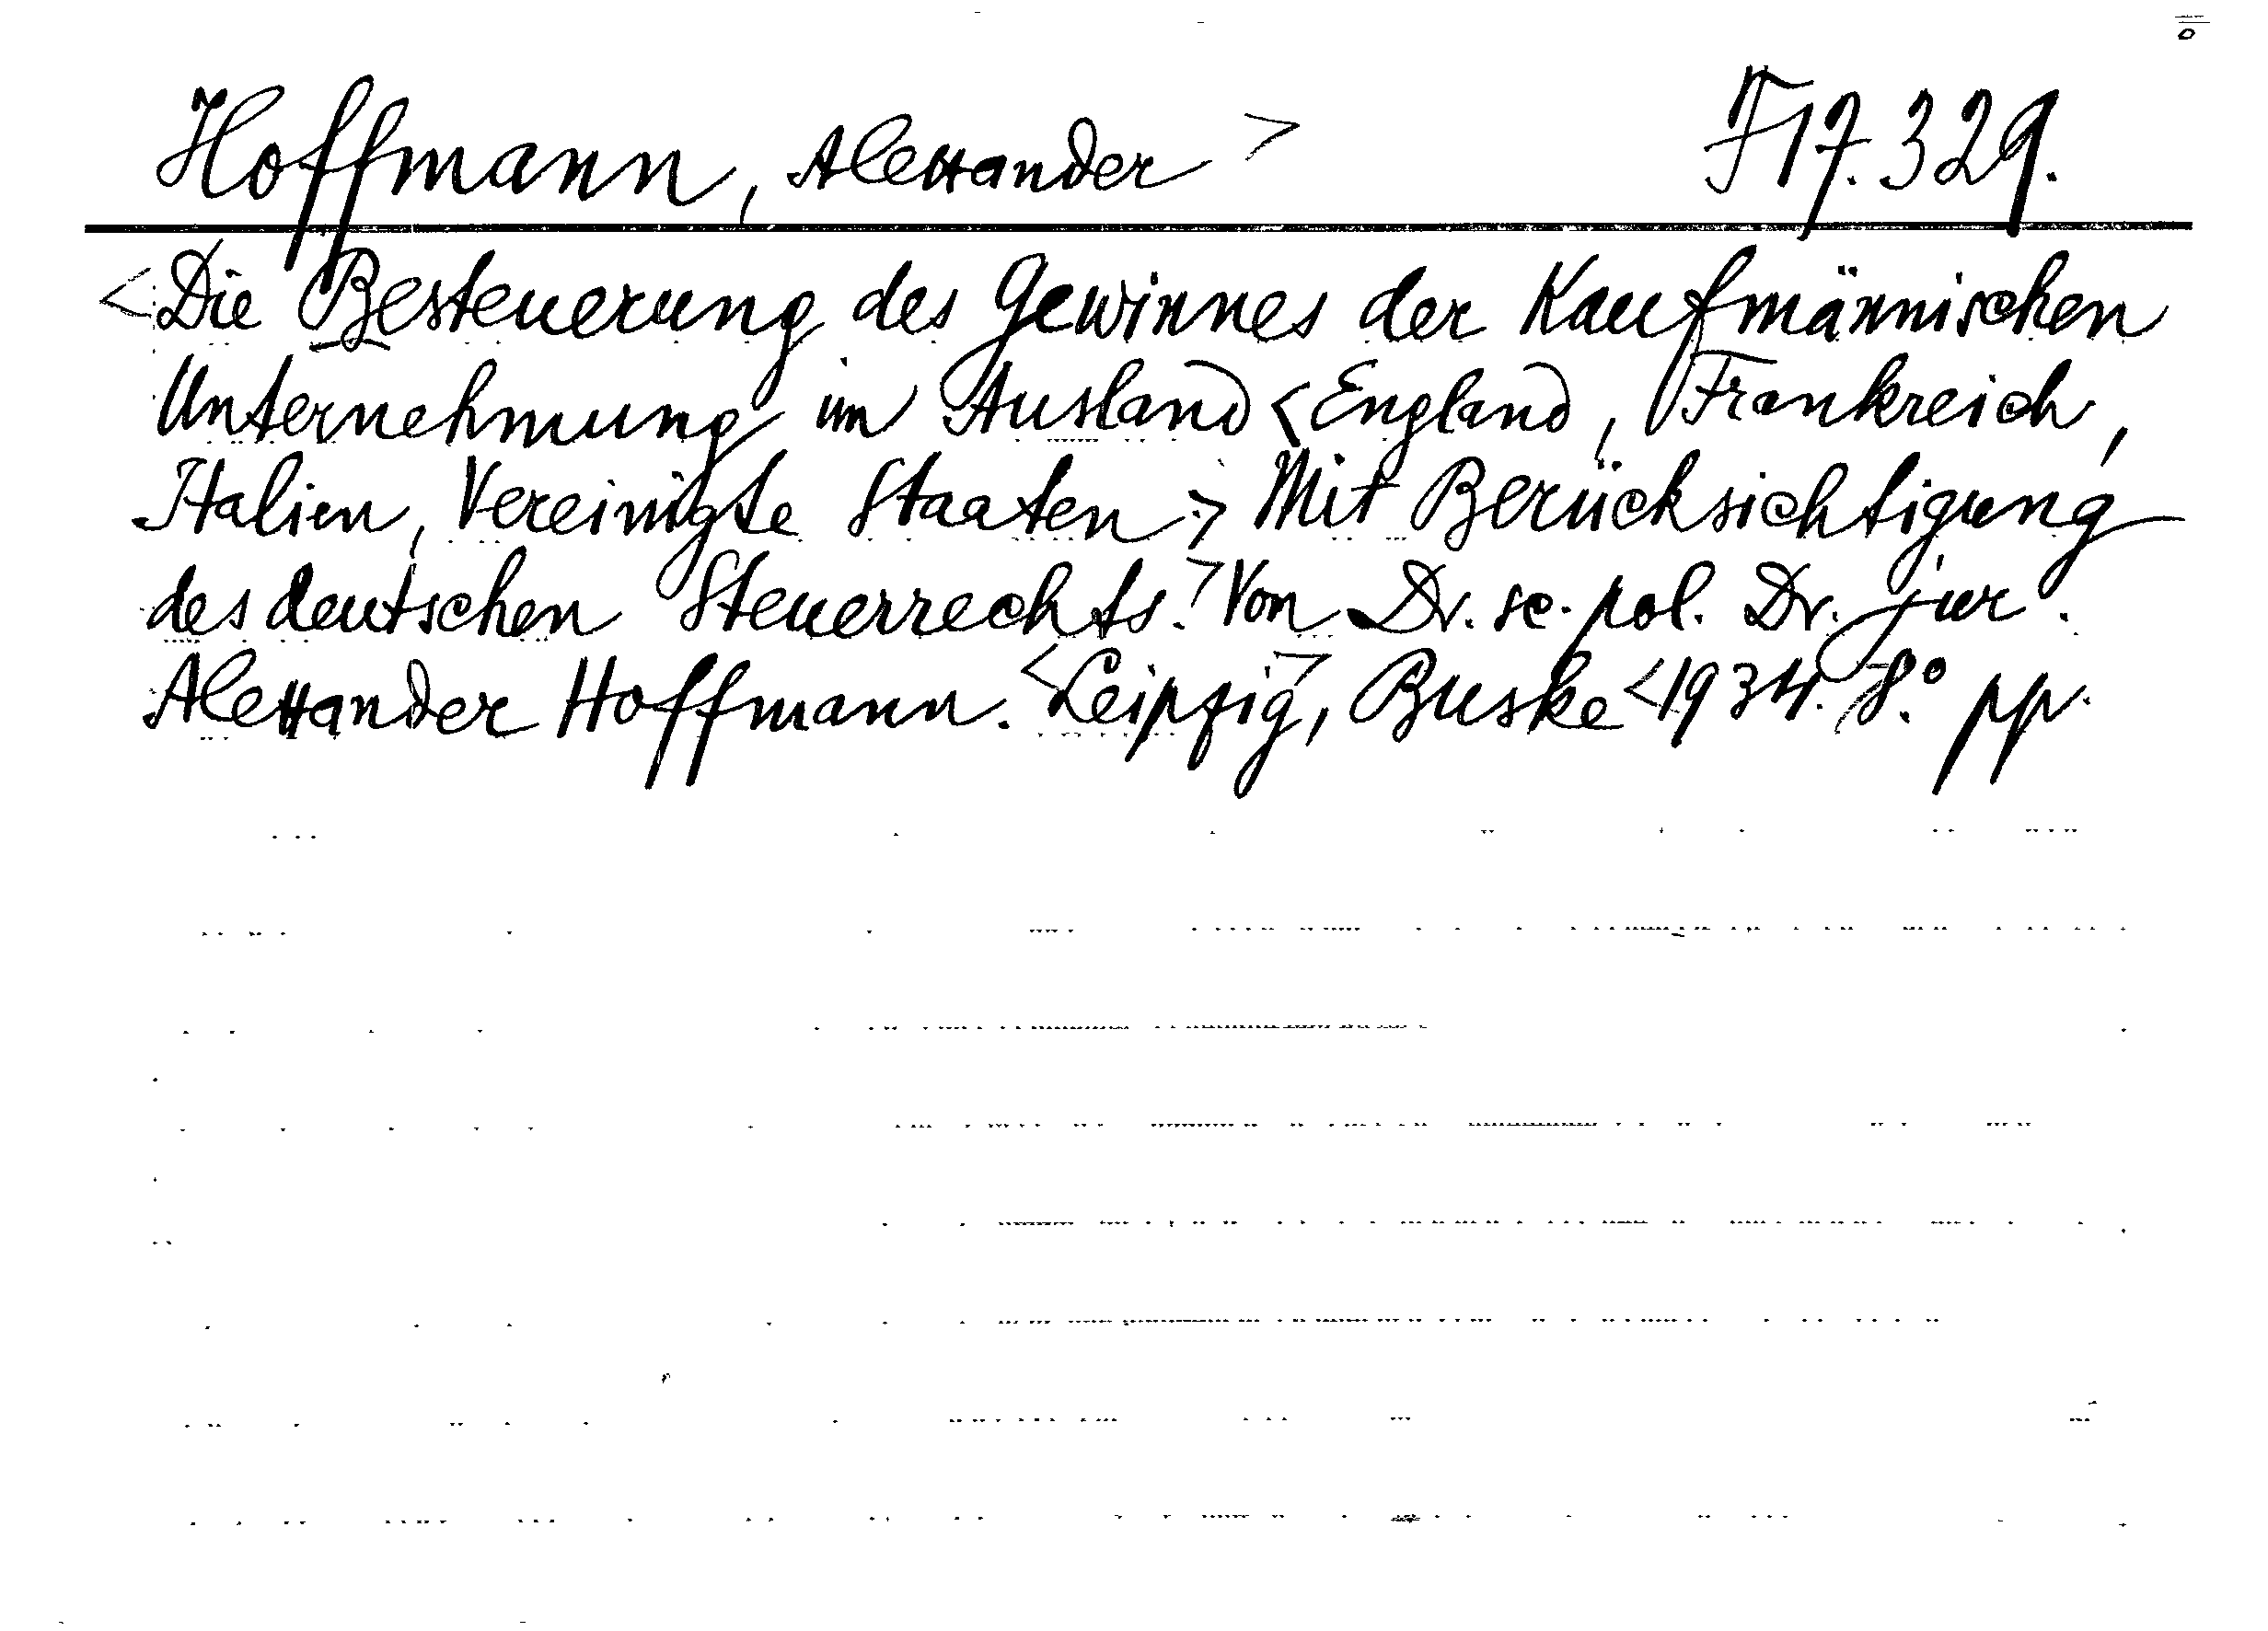 Hoffmann, Alexander > F17.329.
<Die Besteuerung des Gewinnes der Kaufmännischen
Unternehmung im Ausland <England, Frankreich,
Italien, Vereinigte Staaten.> Mit Berücksichtigung
des deutschen Steuerrechts.> Von Dr. sc. pol. Dr. jur.
Alexander Hoffmann. <Leipzig>, Buske <1934. 8.° pp.